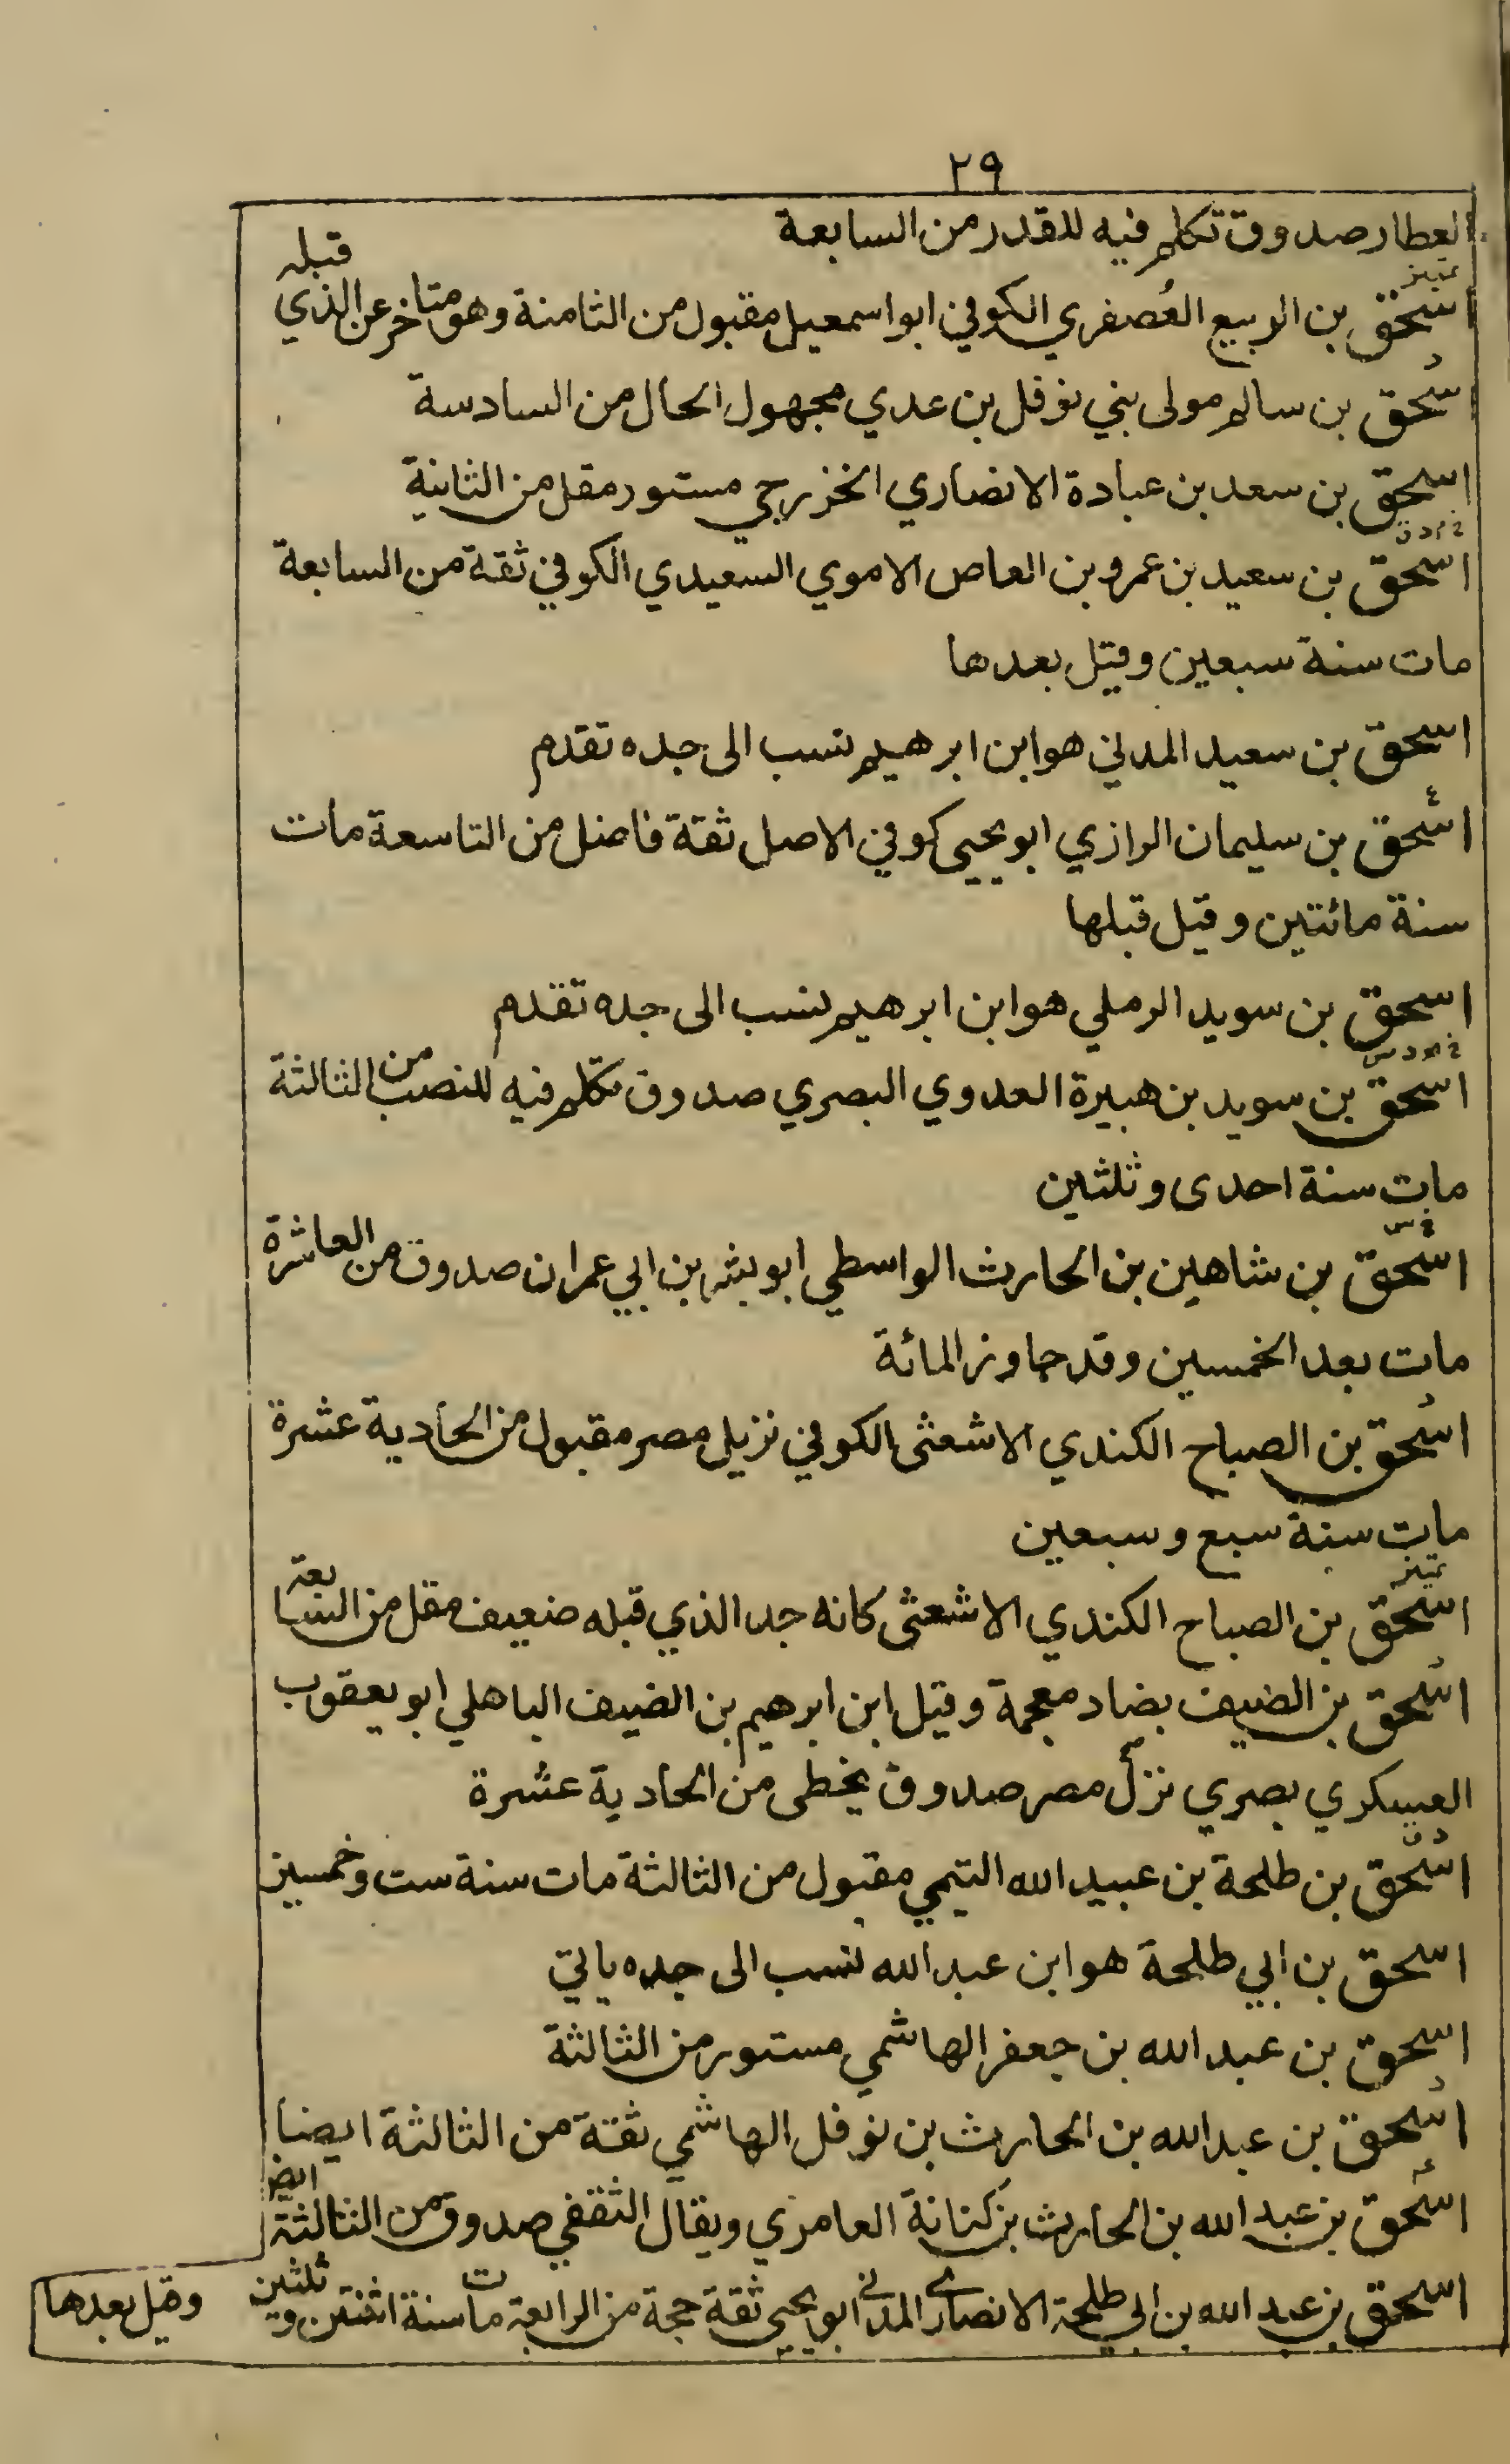 ٢٩
العطار صدوق تكلم فيه للقدر من السابعة
تمييز
اسحق بن الربيع العُصفري الكوفي ابو اسمعيل مقبول من الثامنة وهو متاخر عن الذي قبله
د
اسحق بن سالم مولى بني نوفل بن عدي مجهول الحال من السادسة
اسحق بن سعد بن عبادة الانصاري الخزرجي مستور مقل من الثانية
خ م د ق
اسحق بن سعيد بن عمرو بن العاص الاموي السعيدي الكوفي ثقة من السابعة
مات سنة سبعين وقيل بعدها
اسحق بن سعيد المدني هو ابن ابرهيم نسب الى جده تقدم
ع
اسحق بن سليمان الرازي ابو يحيى كوفي الاصل ثقة فاضل من التاسعة مات
سنة مائتين وقيل قبلها
اسحق بن سويد الرملي هو ابن ابرهيم نسب الى جده تقدم
خ م د س
اسحق بن سويد بن هبيرة العدوي البصري صدوق تكلم فيه للنصب من الثالثة
مات سنة احدى وثلثين
خ س
اسحق بن شاهين بن الحارث الواسطي ابو بشر بن ابي عمران صدوق من العاشرة
مات بعد الخمسين وقد جاوز المائة
د
اسحق بن الصباح الكندي الاشعثى الكوفي نزيل مصر مقبول من الحادية عشرة
مات سنة سبع وسبعين
تمييز
اسحق بن الصباح الكندي الاشعثى كانه جد الذي قبله ضعيف مقل من السابعة
د
اسحق بن الضيف بضاد معجمة وقيل ابن ابرهيم بن الضيف الباهلي ابو يعقوب
العسكري بصري نزل مصر صدوق يخطى من الحادية عشرة
د ق
اسحق بن طلحة بن عبيد الله التيمي مقبول من الثالثة مات سنة ست وخمسين
اسحق بن ابي طلحة هو ابن عبد الله نسب الى جده ياتي
اسحق بن عبد الله بن جعفر الهاشمي مستور من الثالثة
د
اسحق بن عبد الله بن الحارث بن نوفل الهاشمي ثقة من الثالثة ايضا
عم
اسحق بن عبد الله بن الحارث بن كنانة العامري ويقال الثقفي صدوق من الثالثة ايض
اسحق بن عبد الله بن ابي طلحة الانصاري المدني ابو يحيى ثقة حجة من الرابعة مات سنة اثنتين وثلثين وقيل بعدها